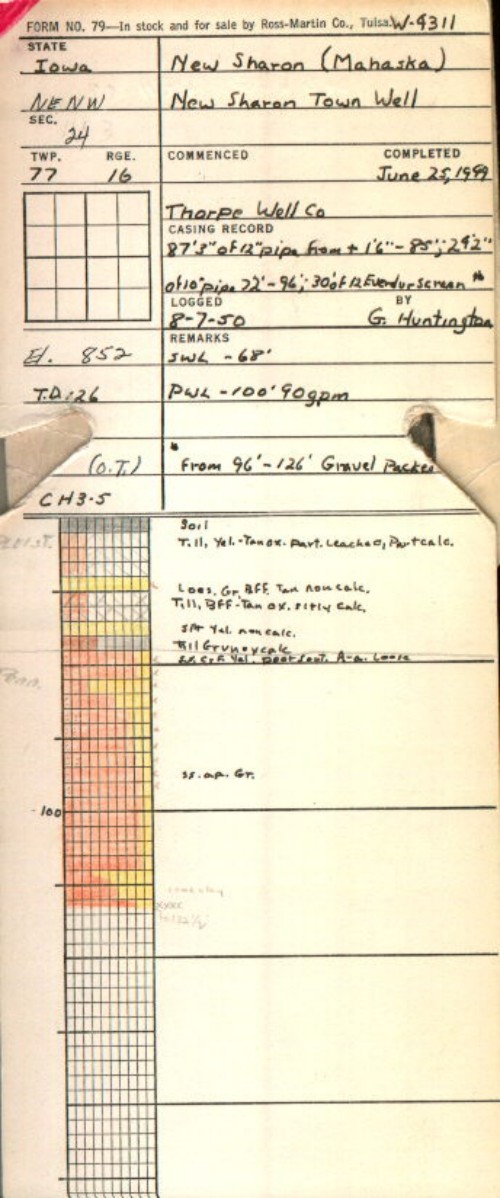 FORM NO. 79—In stock and for sale by Ross-Martin Co., Tulsa. W-4311
STATE
Iowa New Sharon (Mahaska)
NE NW New Sharon Town Well
SEC.
24
TWP. RGE. COMMENCED COMPLETED
77 16 June 25, 1949
Thorpe Well Co
CASING RECORD
87'3" of 12" pipe from + 1'6" - 85'; 24'2"
of 10" pipe 72' - 96'; 30' of 12 Everdur screen *
LOGGED BY
8-7-50 G. Huntington
REMARKS
El. 852 SWL - 68'
T.D. 126 PWL - 100' 90gpm
*
(O.T.) From 96' - 126' Gravel Packed
CH3-5
Soil
Till, Yel.-Tan ox. part. leached, Part calc.
Loess, Gr. BFF. Tan noncalc.
Till, BFF-Tan ox. sltly calc.
Slt Yel. noncalc.
Till Gr unox calc
Penn.
ss. a.a. Gr.
100